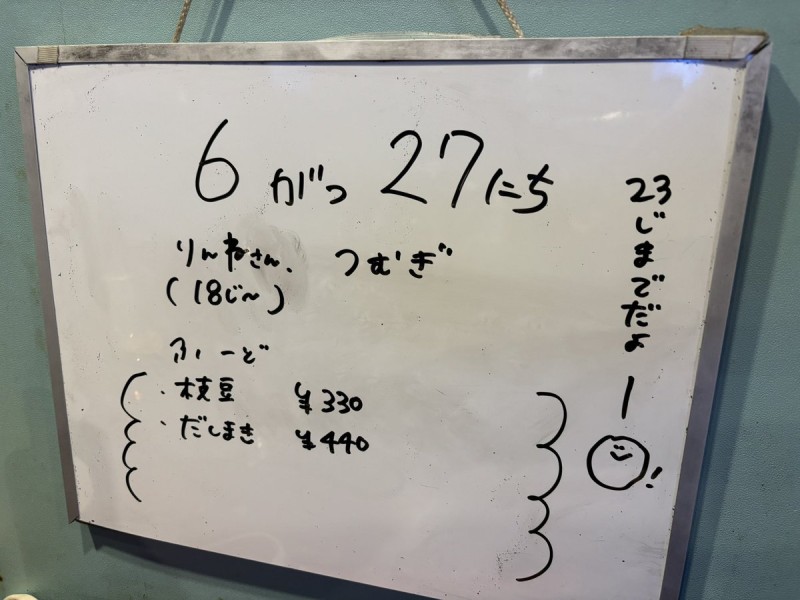 6がつ27にち
りんねさん、つむぎ
(18じ〜)
ふーど
・枝豆 ¥330
・だしまき ¥440
23じまでだよー!